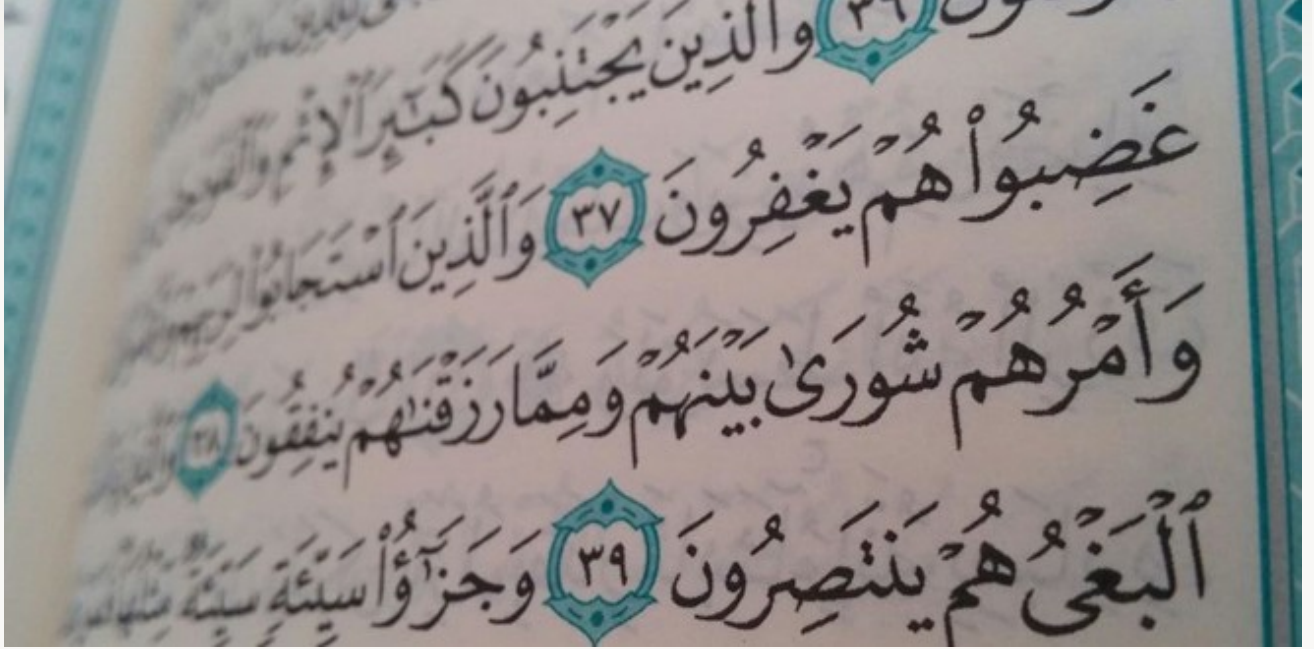 ٣٦ وَٱلَّذِينَ يَجْتَنِبُونَ كَبَٰٓئِرَ ٱلْإِثْمِ
غَضِبُوا۟ هُمْ يَغْفِرُونَ ٣٧ وَٱلَّذِينَ ٱسْتَجَابُوا۟ لِرَبِّهِمْ
وَأَمْرُهُمْ شُورَىٰ بَيْنَهُمْ وَمِمَّا رَزَقْنَٰهُمْ يُنفِقُونَ ٣٨ وَٱلَّذِينَ
ٱلْبَغْىُ هُمْ يَنتَصِرُونَ ٣٩ وَجَزَٰٓؤُا۟ سَيِّئَةٍ سَيِّئَةٌ مِّثْلُهَا